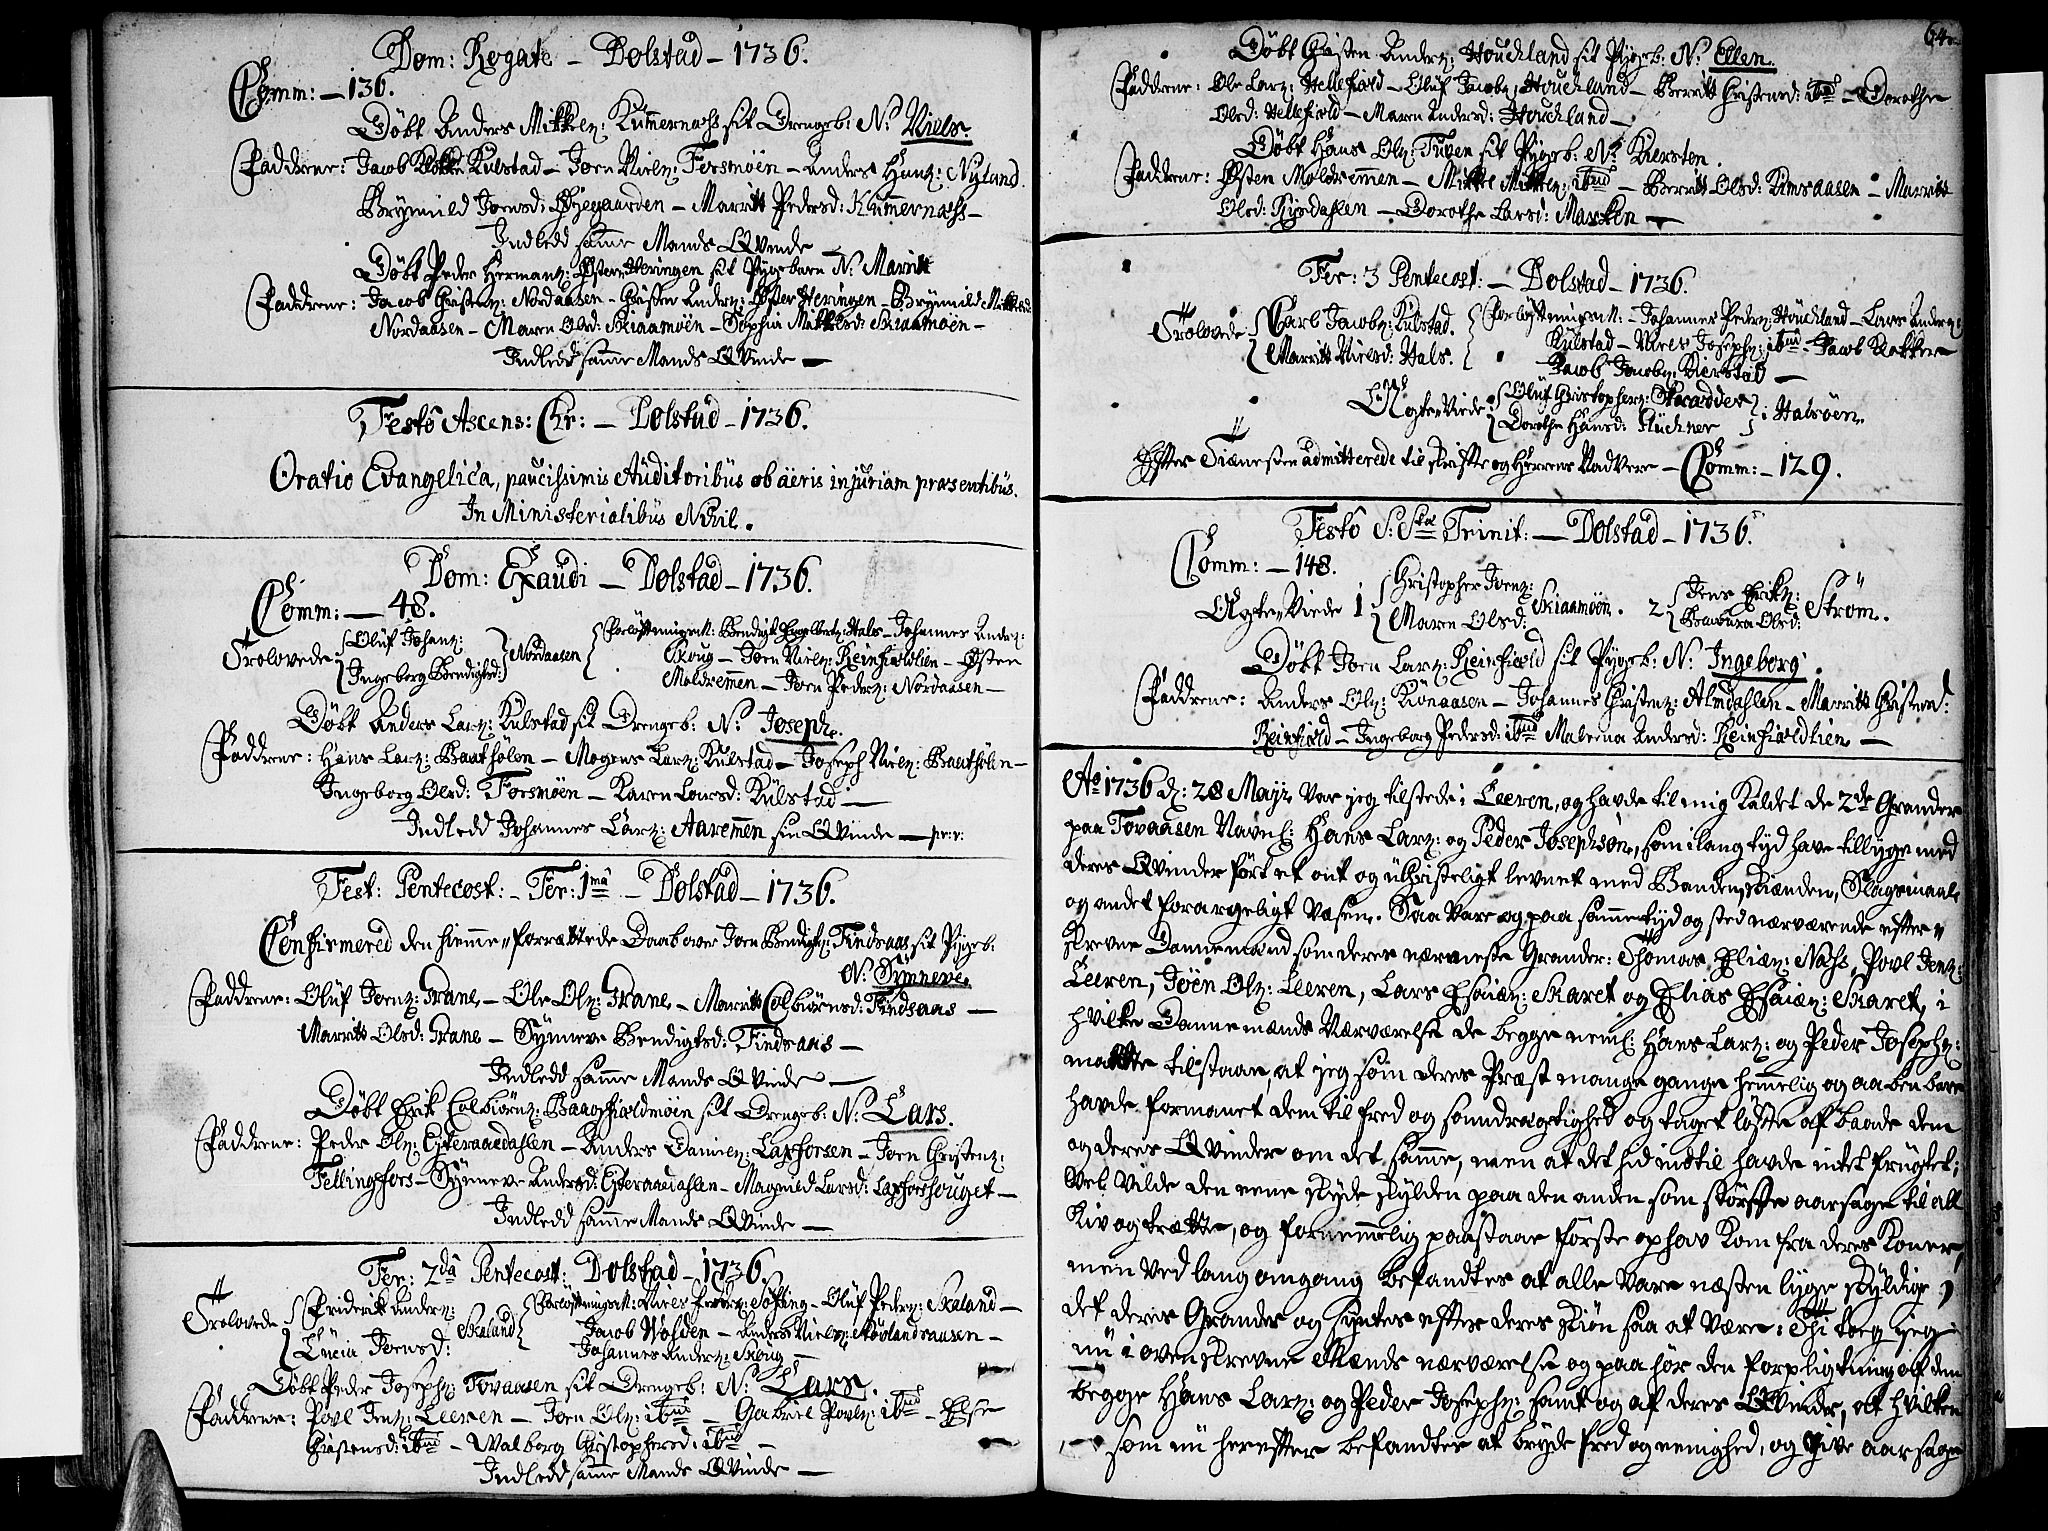 Dom: Rogate – Dolstad – 1736.
Comm: – 136.
Döbt Anders Mikkelz: Kummernæss sit Drengeb: N: Niels.
Faddrene: Jacob Klokker Kulstad – Joen Nielz: Forsmöen – Anders Hanz: Nyland.
Brynnild Joensd: Øyegaarden – Marritt Pedersd: Kummernæss –
Indledd samme Mands Qvinde
Döbt Peder Hermanz: Øster Heringen sit Pygebarn N: Marritt
Faddrene: Jacob Christenz: Nordaasen – Christen Anderz: Øster Heringen – Brynnild Mikkelsd:
Nordaasen – Maren Olsd: Skiaamöen – Sophia Mikkelsd: Skiaamöen –
Indledd samme Mands Qvinde –
Festo Ascens: Chr: – Dolstad – 1736.
Oratio Evangelica, paucissimis Auditoribus ob aëris injuriam præsentibus.
In Ministerialibus Nihil.
Dom: Exaudi – Dolstad – 1736.
Comm: – 48.
Trolovede { Oluf Johanz: Ingeborg Bendigtsd: } Nordaasen { Forlöftningsm: Bendigt Engelbertz: Hals – Johannes Anderz:
Skoug – Joen Nielz: Reinfiældlien – Østen
Moldremmen – Joen Pederz: Nordaasen –
Döbt Anders Larz: Kulstad sit Drengeb: N: Joseph.
Faddrene: Hans Larz: Baatfiölen – Mogens Larz: Kulstad – Joseph Nielz: Baatfiöln –
Ingeborg Olsd: Forsmöen – Karen Larsd: Kulstad –
Indledd Johannes Larz: Aaremmen sin Qvinde –
Fest: Pentecost: – Fer: 1ma – Dolstad – 1736.
Confirmered den hiemme forrættede Daab over Joen Bendigtz: Findsaas sit Pigeb:
N: Synneve.
Faddrene: Oluf Joenz: Grane – Ole Olz: Grane – Marritt Colbiörnsd: Findsaas –
Marritt Olsd: Grane – Synneve Bendigtsd: Findsaas –
Indledd samme Mands Qvinde –
Döbt Erik Colbiörnz: Baagfiældmöen sit Drengeb: N: Lars.
Faddrene: Peder Olz: Eyteraaedahlen – Anders Daniez: Laxforsen – Joen Christenz:
Fellingfors – Synneve Andersd: Eyteraaedahlen – Magnild Larsd: Laxforshouget –
Indledd samme Mands Qvinde –
Fer: 2da Pentecost: Dolstad – 1736.
Trolovede { Friderik Anderz: Skaland { Forlöftningsm: Niels Söfting – Oluf Pederz: Skaland –
Lucia Joensd: Jacob Wolden – Anders Nielz: Skoulandsaasen –
Johannes Anderz: Skoug –
Döbt Peder Josephz: Tovaasen sit Drengeb: N: Lars.
Faddrene: Povl Jenz: Leeren – Joen Olz: ibid – Gabriel Povlz: ibid – Else
Christensd: ibid – Walborg Christophersd: ibid –
Indledd samme Mands Qvinde –
64.
Döbt Christen Anderz: Houckland sit Pygeb: N: Ellen.
Faddrene: Ole Larz: Hellefiæld – Oluf Jacobz: Houckland – Berritt Christensd: ibid – Dorothe
Olsd: Hellefiæld – Maren Andersd: Houckland –
Döbt Hans Olz: Tuven sit Pygeb: N: Kiersten.
Faddrene: Østen Moldremmen – Mikkel Mikkelz: ibid – Berritt Olsd: Remsaasen – Marritt
Olsd: Rysdahlen – Dorothe Larsd: Marken –
Fer: 3 Pentecost: – Dolstad – 1736.
Trolovede { Carl Jacobz: Kulstad. { Forlöftningsm: – Johannes Pederz: Houckland – Lars Anderz:
Marritt Nielsd: Hals. { Kulstad – Niels Josephz: ibid – Jacob Klokker
Jacob Jacobz: Kierstad –
Ægte Viede { Oluf Christopherz: Skrædder
Dorothe Hansd: Fluckner } i Halsöen.
Efter Tienesten admitterede til skrifte og Herrens Nadvere – Comm: – 129.
Festo S: Stæ Trinit: – Dolstad – 1736.
Comm: – 148.
Ægte Viede 1 { Christopher Joenz: Maren Olsd: Skiaamöen. 2 { Jens Erikz: Barbara Olsd: Ström.
Döbt Joen Larz: Reinfiæld sit Pygeb: N: Ingeborg.
Faddrene: Anders Olz: Kiönaasen – Johannes Christenz: Almdahlen – Marritt Christensd:
Reinfiæld – Ingeborg Pedersd: ibid Malena Andersd: Reinfiældlien –
Ao 1736 d: 28 Maij var jeg tilstede i Leeren, og havde til mig kaldet de 2de Grander
paa Tovaasen Navnl: Hans Larz: og Peder Josephsøn, som i lang tyd have tillige med
deres Qvinder fört et ont og uChristeligt levnet med Banden, Skienden, Slagsmaal
og andet forargeligt væsen. Saa vare og paa samme tyd og sted nærværende efter
skrevne Dannemænd som deres nærmeste Grander: Thomas Eliæz: Næss, Povl Jenz:
Leeren, Joen Olz: Leeren, Lars Esaiæz: Skaret og Elias Esaiæz: Skaret, i
hvilke Dannemænds Nærværelse de begge neml: Hans Larz: og Peder Josephz:
maatte tilstaae, at jeg som deres Præst mange gange hemmelig og aabenbare
havde formanet dem til fred og samdrægtighed og taget löfte af baade dem
og deres Qvinder om det samme, men at det hid indtil havde intet frugtet;
Vel vilde den eene skyde skylden paa den anden som störste aarsage til all
Kiv og trætte, og fornemmelig paastaae förste ophav kom fra deres Koner,
men ved lang omgang befandtes at alle vare næsten lyge skyldige,
det deres Grander og syntes efter deres skiön saa at være: Thi tog jeg
nu i ovenskrevne Mænds nærværelse og paahör den forpligtning af dem
begge Hans Larz: og Peder Josephz: samt og af deres Qvinder, at hvilken
som nu herefter befandtes at bryde fred og eenighed, og give aarsage